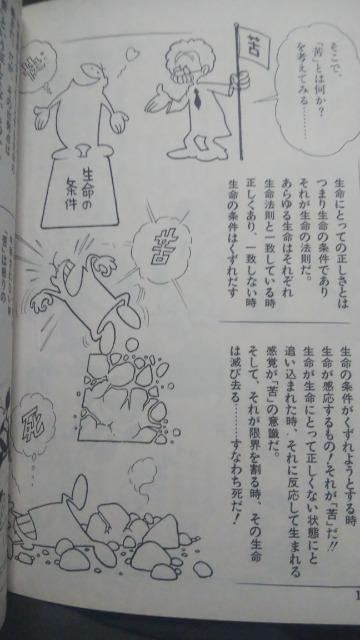 そこで、
「苦」とは何か?
を考えてみる………
苦
生命の
条件
生命にとっての正しさとは
つまり生命の条件であり
それが生命の法則だ。
あらゆる生命はそれぞれ
生命法則と一致している時
正しくあり、一致しない時
生命の条件はくずれだす
苦
生命の条件がくずれようとする時
生命が感応するもの!それが「苦」だ!!
生命が生命にとって正しくない状態にと
追い込まれた時、それに反応して生まれる
感覚が「苦」の意識だ。
そして、それが限界を割る時、その生命
は滅び去る………すなわち死だ!
死